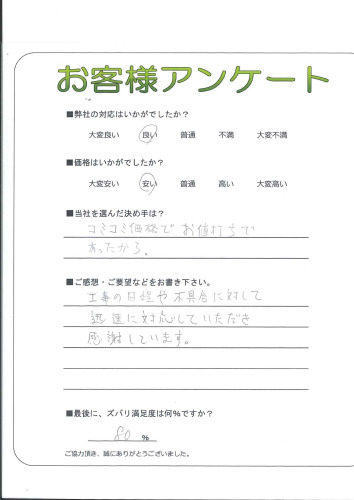 お客様アンケート
■弊社の対応はいかがでしたか？
大変良い 良い 普通 不満 大変不満
■価格はいかがでしたか？
大変安い 安い 普通 高い 大変高い
■当社を選んだ決め手は？
コミコミ価格で お値打ちで
あったから。
■ご感想・ご要望などをお書き下さい。
工事の日程や不具合に対して
迅速に対応していただき
感謝しています。
■最後に、ズバリ満足度は何%ですか？
80 %
ご協力頂き、誠にありがとうございました。